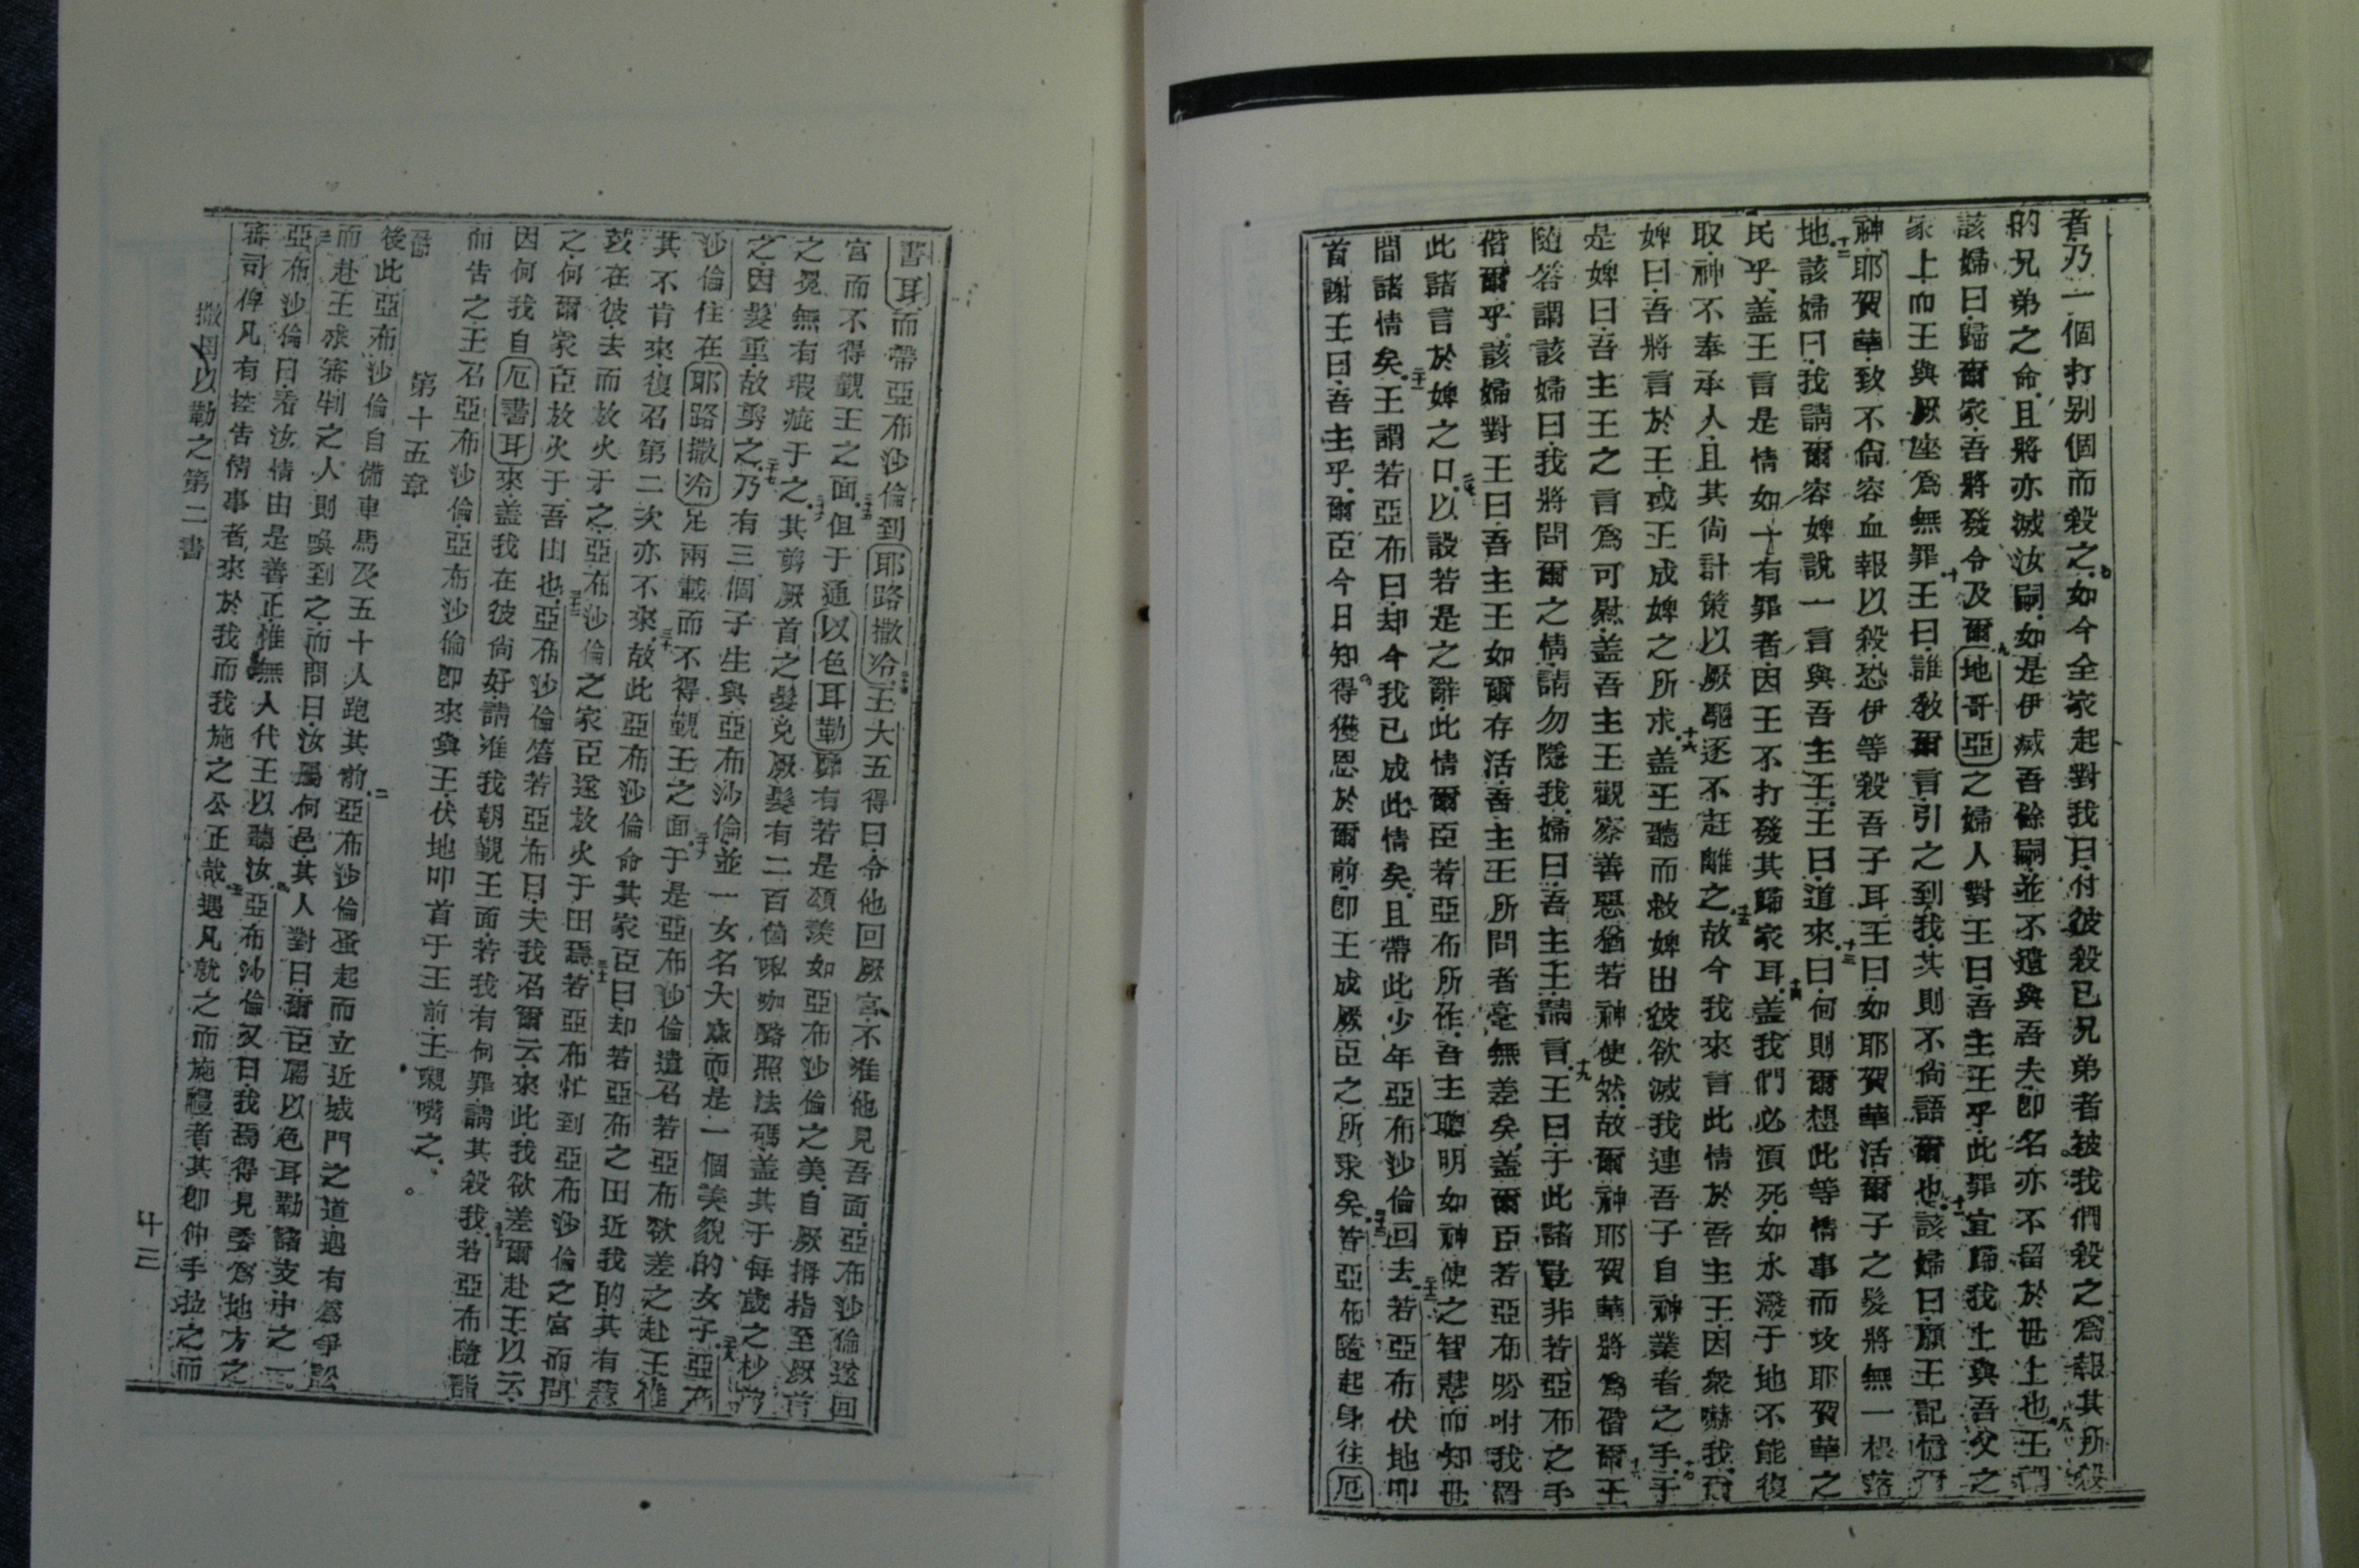 者乃一個打别個而殺之如今全家起對我曰付彼殺已兄弟者被我們殺之爲報其所殺
的兄弟之命且將亦滅汝嗣如是伊滅吾餘嗣並不遺與吾夫卽名亦不留於世上也王謂
該婦曰歸爾家吾將發令及爾地哥亞之婦人對王曰吾主王乎此罪宜歸我上與吾父之
家上而王與厥座爲無罪王曰誰敎爾言引之到我其則不尙語爾也該婦曰願王記憶爾
神耶賀華致不尙容血報以殺恐伊等殺吾子耳王曰如耶賀華活爾子之髮將無一根落
地該婦曰我請爾容婢說一言與吾主王王曰道來曰何則爾想此等情事而攻耶賀華之
民乎盖王言是情如十有罪者因王不打發其歸家耳盖我們必須死如水潑于地不能復
取神不奉承人且其尙計策以厥驅逐不赶離之故今我來言此情於吾主王因衆嚇我爾
婢曰吾將言於王或王成婢之所求盖王聽而救婢出彼欲滅我連吾子自神業者之手于
是婢曰吾主王之言爲可慰盖吾主王觀察善惡猶若神使然故爾神耶賀華將爲偕爾王
隨答謂該婦曰我將問爾之情請勿隱我婦曰吾主王請言王曰于此諸豈非若亞布之手
偕爾乎該婦對王曰吾主王如爾存活吾主王所問者毫無差矣盖爾臣若亞布吩咐我謂
此諸言於婢之口以設若是之辭此情爾臣若亞布所作吾主聰明如神使之智慧而知世
間諸情矣王謂若亞布曰却今我已成此情矣且帶此少年亞布沙倫回去若亞布伏地叩
首謝王曰吾主乎爾臣今日知得獲恩於爾前卽王成厥臣之所求矣若亞布隨起身往厄
書耳而帶亞布沙倫到耶路撒冷王大五得曰令他回厥宮不准他見吾面亞布沙倫遂回
宮而不得觀王之面但于通以色耳勒靡有若是頌羡如亞布沙倫之美自厥拇指至厥首
之冕無有瑕疵于之其剪厥首之髮兌厥髮有二百個㖿咖路照法碼盖其于每歲之杪剪
之因髮重故剪之乃有三個子生與亞布沙倫並一女名大麻而是一個美貌的女子亞布
沙倫住在耶路撒冷足兩載而不得觀王之面于是亞布沙倫遣召若亞布欲差之赴王惟
其不肯來復召第二次亦不來故此亞布沙倫命其家臣曰却若亞布之田近我的其有薏
苡在彼去而放火于之亞布沙倫之家臣遂放火于田焉若亞布忙到亞布沙倫之宮而問
之何爾家臣放火于吾田也亞布沙倫答若亞布曰夫我召爾云來此我欲差爾赴王以云
因何我自厄書耳來盖我在彼尙好請准我朝觀王面若我有何罪請其殺我若亞布隨詣
而告之王召亞布沙倫亞布沙倫卽來與王伏地叩首于王前王親嘴之
第十五章
後此亞布沙倫自備車馬及五十人跑其前亞布沙倫蚤起而立近城門之道遇有爲爭訟
而赴王求審判之人則喚到之而問曰汝屬何邑其人對曰爾臣屬以色耳勒諸支中之一
亞布沙倫曰看汝情由是善正惟無人代王以聽汝亞布沙倫又曰我焉得見委爲地方之
審司俾凡有控告情事者來於我而我施之公正哉遇凡就之而施禮者其卽伸手拉之而
撒母以勒之第二書
廿三